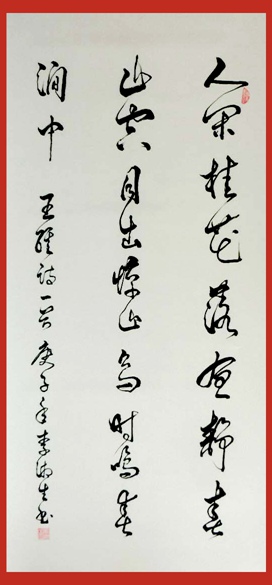 人闲桂花落夜静春
山空月出惊山鸟时鸣春
涧中
王维诗一首庚子年李
书